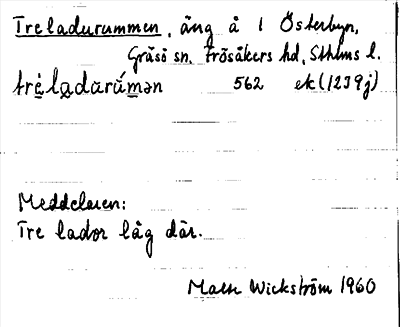 Treladurummen, äng å 1 Österbyn,
Gräsö sn. Frösåkers hd, Sthlms l.
tré̱la̱durúm̱ən 562 ek (1239j)
Meddelaren:
Tre lador låg där.
Wickström 1960